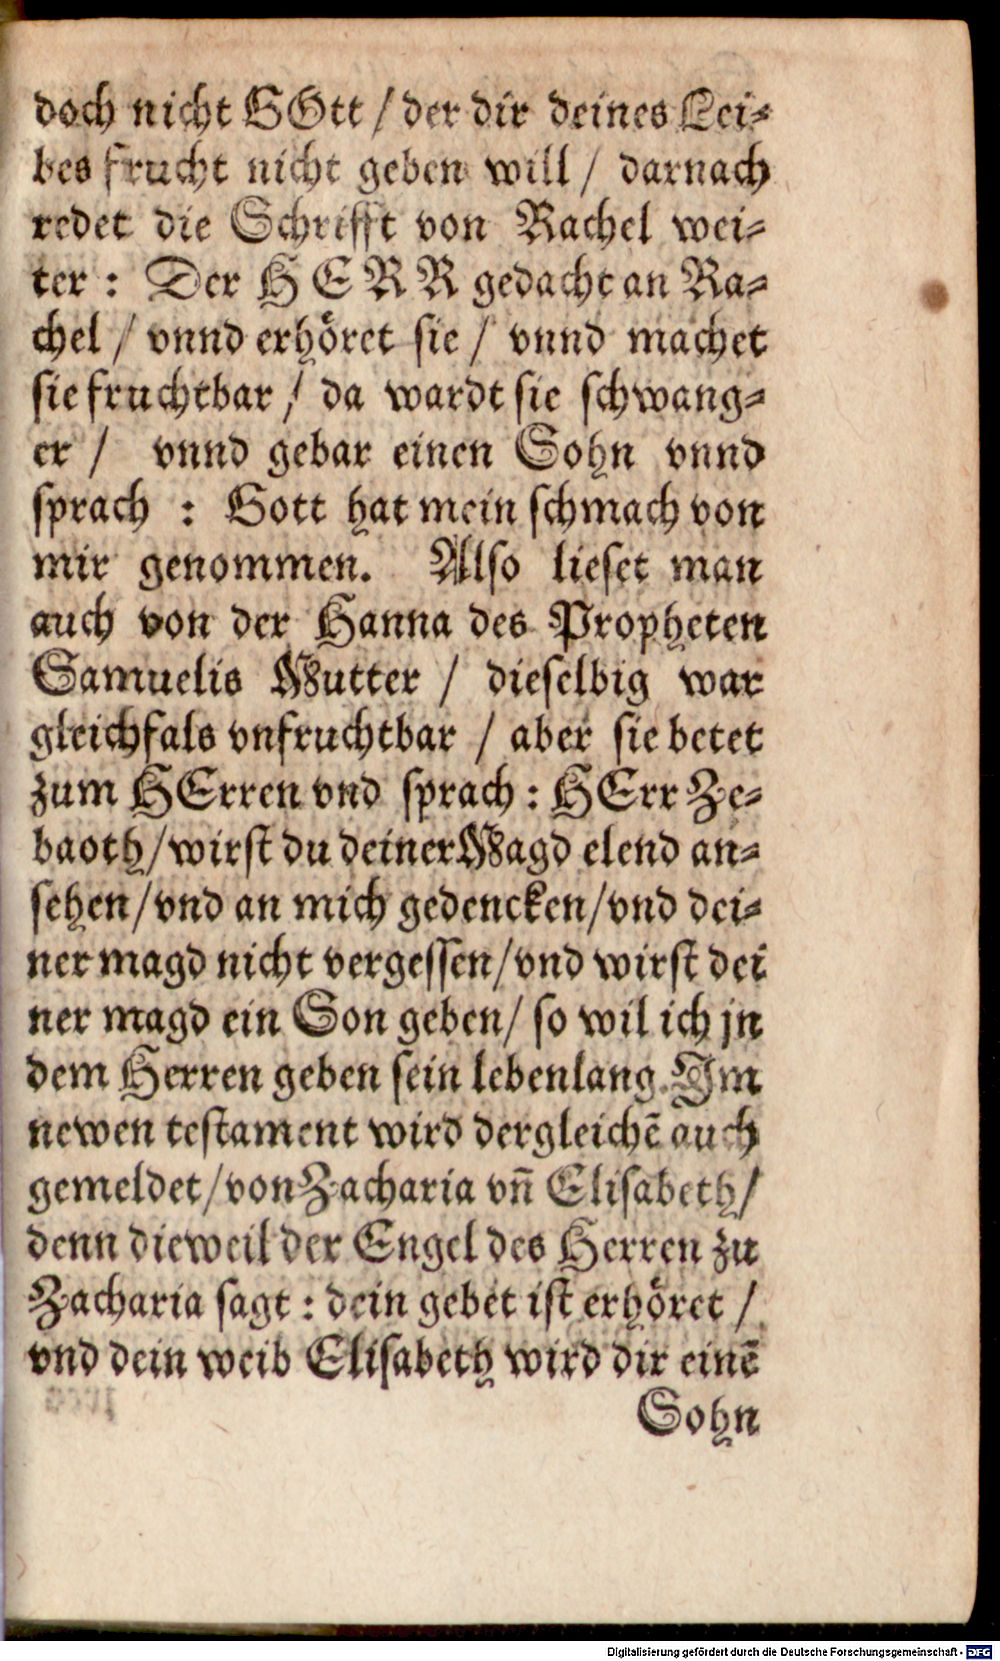 doch nicht GOtt / der dir deines Lei⸗
bes frucht nicht geben will / darnach
redet die Schrifft von Rachel wei⸗
ter : Der HERR gedacht an Ra⸗
chel / vnnd erhöret sie / vnnd machet
sie fruchtbar / da wardt sie schwang⸗
er / vnnd gebar einen Sohn vnnd
sprach : Gott hat mein schmach von
mir genommen. Also lieset man
auch von der Hanna des Propheten
Samuelis Mutter / dieselbig war
gleichfals vnfruchtbar / aber sie betet
zum HErren vnd sprach : HErr Ze⸗
baoth / wirst du deiner Magd elend an⸗
sehen / vnd an mich gedencken / vnd dei⸗
ner magd nicht vergessen / vnd wirst dei
ner magd ein Son geben / so wil ich jn
dem Herren geben sein lebenlang. Im
newen testament wird dergleichẽ auch
gemeldet / von Zacharia vñ Elisabeth /
denn dieweil der Engel des Herren zu
Zacharia sagt : dein gebet ist erhöret /
vnd dein weib Elisabeth wird dir einẽ
Sohn
Digitalisierung gefördert durch die Deutsche Forschungsgemeinschaft - DFG